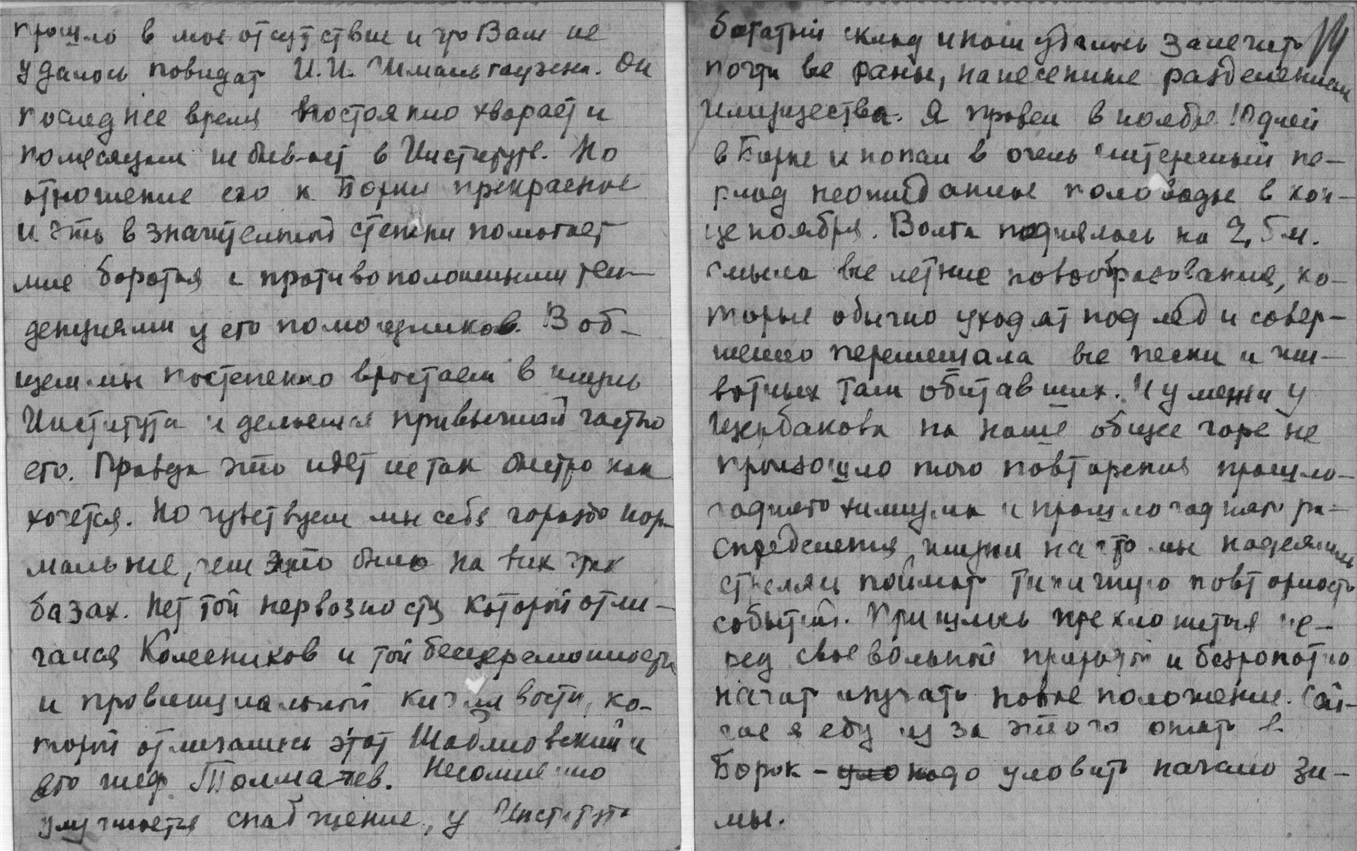 прошло в мое отсутствие и что Вам не
удалось повидать И.И. Шмальгаузена. Он
последнее время постоянно хворает и
по месяцам не бывает в Институте. Но
отношение его к Борку прекрасное
и это в значительной степени помогает
мне бороться с противоположными тен-
денциями у его помощников. В об-
щем мы постепенно врастаем в жизнь
Института и делаемся привычной частью
его. Правда это идет не так быстро как
хочется. Но чувствуем мы себя гораздо нор-
мальнее, чем это было на тех трех
базах. Нет той нервозности которой отли-
чался Колесников и той бесцеремонности
и провинциальной кичливости, ко-
торой отличались этот Шаблиовский и
его шеф Толмачев. Несомненно
улучшается снабжение, у Института
14
богатый склад и нам удалось залечить
почти все раны, нанесенные разделением
имущества. Я провел в ноябре 10 дней
в Борке и попал в очень интересный пе-
риод неожиданное половодье в кон-
це ноября. Волга поднялась на 2,5 м.
смыла все летние новообразования, ко-
торые обычно уходят под лед и совер-
шенно перемешала все пески и жи-
вотных там обитавших. И у меня и у
Щербакова на наше общее горе не
произошло того повторения прошло-
годнего и прошлогоднего ра-
спределения жизни на что мы надеялись
стремясь поймать типичную повторность
событий. Пришлось преклониться пе-
ред своевольной природой и безропотно
начать изучать новое положение. Сей-
час я еду из за этого опять в
Борок - надо уловить начало зи-
мы.